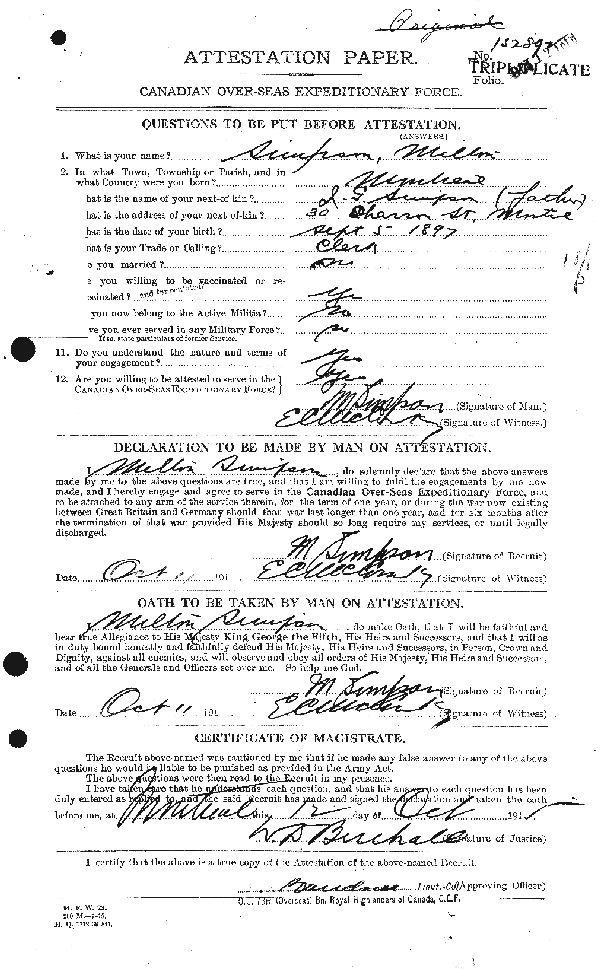 Original
ATTESTATION PAPER.
No. 132897
TRIPLICATE
Folio.
CANADIAN OVER-SEAS EXPEDITIONARY FORCE.
QUESTIONS TO BE PUT BEFORE ATTESTATION.
(ANSWERS)
1. What is your name? Simpson, Milton
2. In what Town, Township or Parish, and in
what Country were you born? Montreal
hat is the name of your next-of-kin? J. G. Simpson (father)
hat is the address of your next-of-kin? 30 St, Montre
hat is the date of your birth? Sept 5 - 1897
hat is your Trade or Calling? Clerk
e you married? no
e you willing to be vaccinated or re-
cinated? Yes
you now belong to the Active Militia? No
ve you ever served in any Military Force? no
If so, state particulars of former Service.
11. Do you understand the nature and terms of
your engagement? Yes
12. Are you willing to be attested to serve in the
CANADIAN OVER-SEAS EXPEDITIONARY FORCE? Yes
M Simpson (Signature of Man.)
(Signature of Witness.)
DECLARATION TO BE MADE BY MAN ON ATTESTATION.
I, Milton Simpson, do solemnly declare that the above answers
made by me to the above questions are true, and that I am willing to fulfil the engagements by me now
made, and I hereby engage and agree to serve in the Canadian Over-Seas Expeditionary Force, and
to be attached to any arm of the service therein, for the term of one year, or during the war now existing
between Great Britain and Germany should that war last longer than one year, and for six months after
the termination of that war provided His Majesty should so long require my services, or until legally
discharged.
M Simpson (Signature of Recruit)
Date Oct 11 191 (Signature of Witness)
OATH TO BE TAKEN BY MAN ON ATTESTATION.
I, Milton Simpson, do make Oath, that I will be faithful and
bear true Allegiance to His Majesty King George the Fifth, His Heirs and Successors, and that I will as
in duty bound honestly and faithfully defend His Majesty, His Heirs and Successors, in Person, Crown and
Dignity, against all enemies, and will observe and obey all orders of His Majesty, His Heirs and Successors,
and of all the Generals and Officers set over me. So help me God.
M Simpson (Signature of Recruit)
Date Oct 11 191 (Signature of Witness)
CERTIFICATE OF MAGISTRATE.
The Recruit above-named was cautioned by me that if he made any false answer to any of the above
questions he would be liable to be punished as provided in the Army Act.
The above questions were then read to the Recruit in my presence.
I have taken care that he understands each question, and that his answer to each question has been
duly entered as replied to, and the said Recruit has made and signed the declaration and taken the oath
before me, at Montreal this 12 day of Oct 191
(Signature of Justice)
I certify that the above is a true copy of the Attestation of the above-named Recruit.
Lieut.-Col. (Approving Officer)
O.C. 73rd (Overseas) Bn. Royal Highlanders of Canada, C.E.F.
M. F. W. 23.